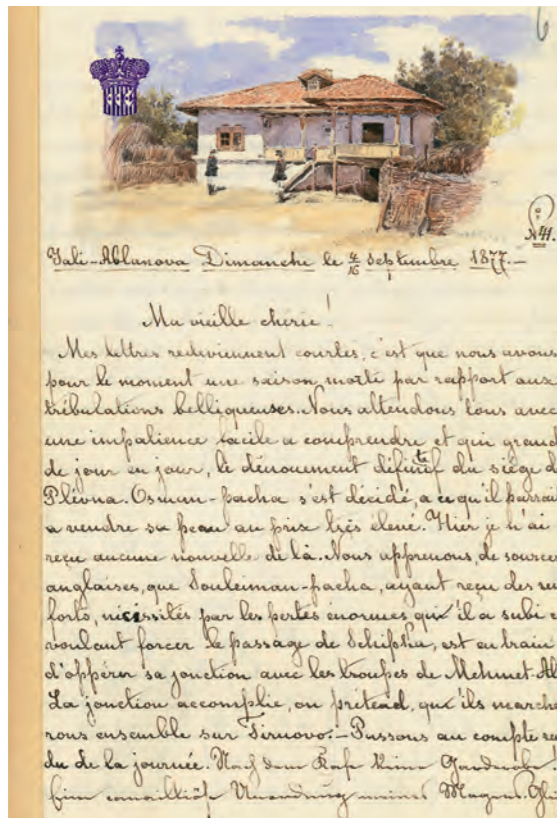 6
№ 4.
Jali-Ablanova Dimanche le 4/16 Septembre 1877.—
Ma vieille chérie!
Mes lettres redeviennent courtes, c'est que nous avons
pour le moment une saison morte par rapport aux
tribulations belliqueuses. Nous attendons tous avec
une impatience facile a comprendre et qui grand
de jour en jour, le dénouement définitif du siège d
Plevna. Osman-pacha s'est décidé, a ce qu'il parrait
a vendre sa peau au prix très élevé. Hier je n'ai
reçu aucune nouvelle de là. Nous apprenons, de source
anglaises, que Souleiman-pacha, ayant reçu des ren
forts, nécissités par les pertes énormes qu'il a subi e
voulant forcer le passage de Schipka, est en train
d'oppérer sa jonction avec les troupes de Mehmet-Al
La jonction accomplie, on prétend, qu'ils marche
rons ensemble sur Tirnovo.— Passons au compte re
du de la journée. Nach dem Kafe
meines Magens.